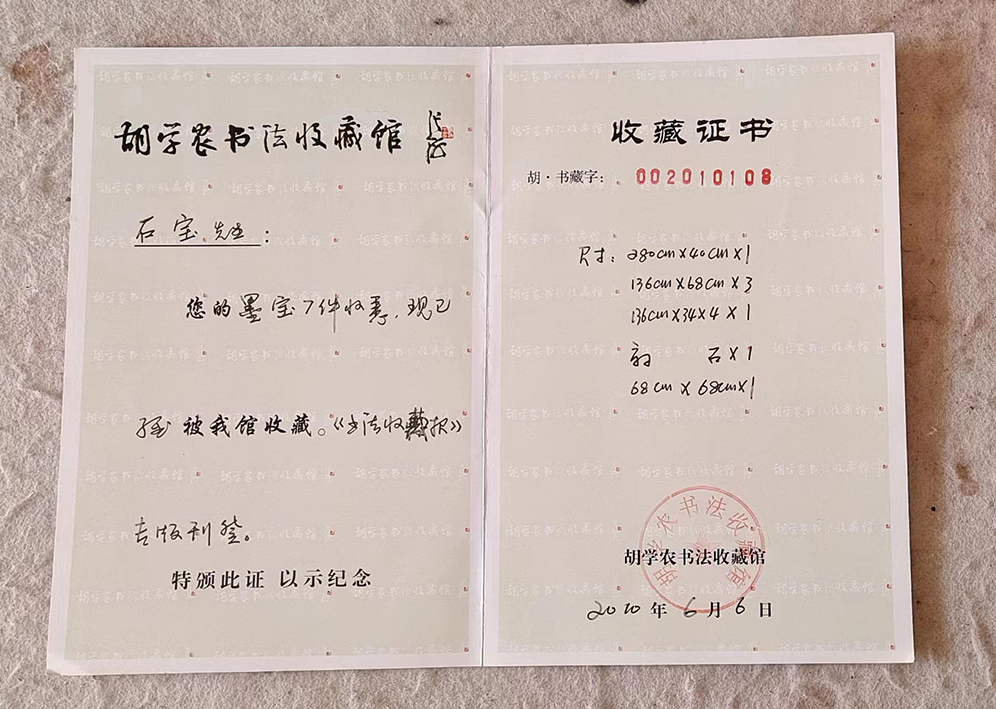 胡学农书法收藏馆
石宝先生：
您的墨宝7件收悉，现已
被我馆收藏。《书法收藏报》
专版刊登。
特颁此证 以示纪念
收藏证书
胡·书藏字： 002010108
尺寸：280cm×40cm×1
136cm×68cm×3
136cm×34×4×1
石×1
68cm×68cm×1
胡学农书法收藏馆
胡学农书法收藏馆
2010年6月6日